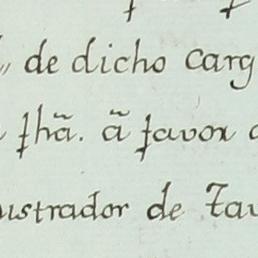 de dicho carg
fhã. ã favor
istrador de Tau